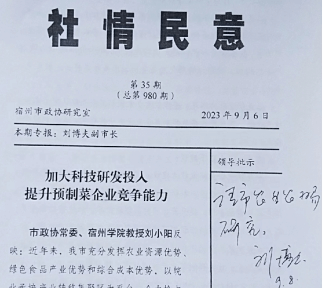 社情民意
第 35 期
(总第 980 期)
宿州市政协研究室 2023 年 9 月 6 日
本期专报：刘博夫副市长
加大科技研发投入
提升预制菜企业竞争能力
市政协常委、宿州学院教授刘小阳反
映：近年来，我市充分发挥农业资源优势、
绿色食品产业优势和综合成本优势，以皖
领导批示
请市
研究。
刘博夫
9.8